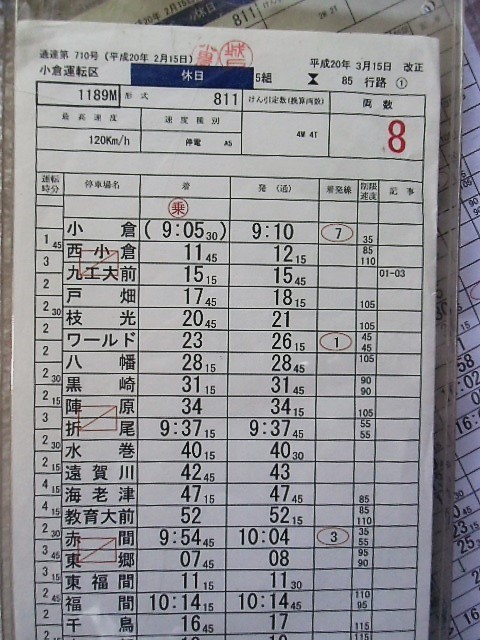 平成20年 2月15日
811
2M 4T
通達第 710号 (平成20年 2月15日)
平成20年 3月15日 改正
小倉運転区 休日 5組 85 行路 ①
1189M 形式 811 けん引定数(換算両数) 両数
最高速度 速度種別 4M 4T 8
120Km/h 停電 A5
運転時分 停車場名 着 発(通) 着発線 制限速度 記事
乗
小倉 (9:05 30) 9:10 7
1 45 35
西小倉 11 45 12 15 85
3 110
九工大前 15 15 15 45 01-03
2
戸畑 17 45 18 15 105
2 30
枝光 20 45 21 105
2
ワールド 23 26 15 1 45
2 45
八幡 28 15 28 45 105
2 30
黒崎 31 15 31 45 90
2 15 90
陣原 34 34 15
3 105
折尾 9:37 15 9:37 45 55
2 30 55
水巻 40 15 40 30
2 15
遠賀川 42 45 43
4 15
海老津 47 15 47 45 85
4 15 85
教育大前 52 52 15 110
2 30
赤間 9:54 45 10:04 3 35
3 45 55
東郷 07 45 08 95
3 15 90
東福間 11 15 11 30
2 45
福間 10:14 15 10:14 45 110
2 95
千鳥 16 45 17
115